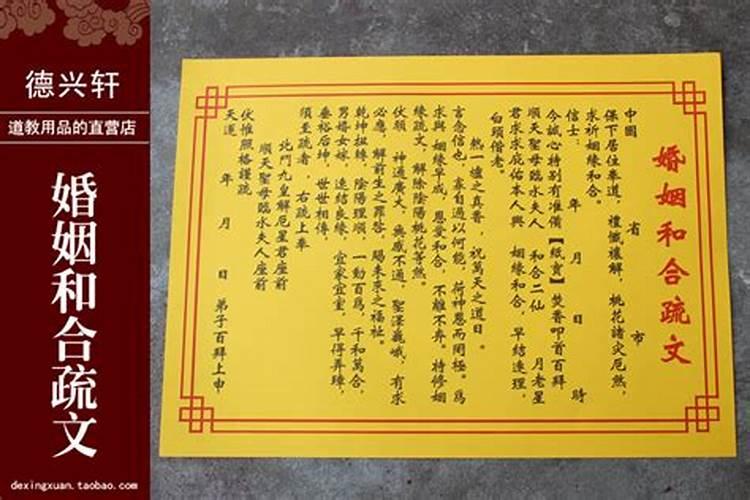 德兴轩
道教用品的直营店
婚姻和合疏文
dexingxuan.taobao.com
婚姻和合疏文
中國 省 市
保下居住奉道,禮懺禳解,桃花諸灾厄煞,
求祈姻緣和合。
信士: 年 月 日 時
今誠心特别有准備【紙寶】焚香叩首百拜
順天聖母臨水夫人 和合二仙 月老星
君求求庇佑本人與 姻緣和合,早结連理,
白頭偕老。
熱一爐之真香,祝萬天之道日。
言念信也,拿自過以何能,荷神恩而罔極。爲
求與 姻緣早成,恩愛和合,不離不弃。特修姻
緣疏文,解除陰陽桃花等煞。
伏願 神通廣大,無感不通,聖澤巍峨,有求
必應,解前生之罪咎,賜未來之福祉。
乾坤扭轉,陰陽理順,一動百爲,千和萬合,
男婚女嫁,速结良緣,宜家宜室,早得弄璋,
垂裕后坤,世世相傳,
須至疏者,右疏上奉
北門九皇解厄星君座前
順天聖母臨水夫人座前
伏惟照格謹疏
天運 年 月 日 弟子百拜上申